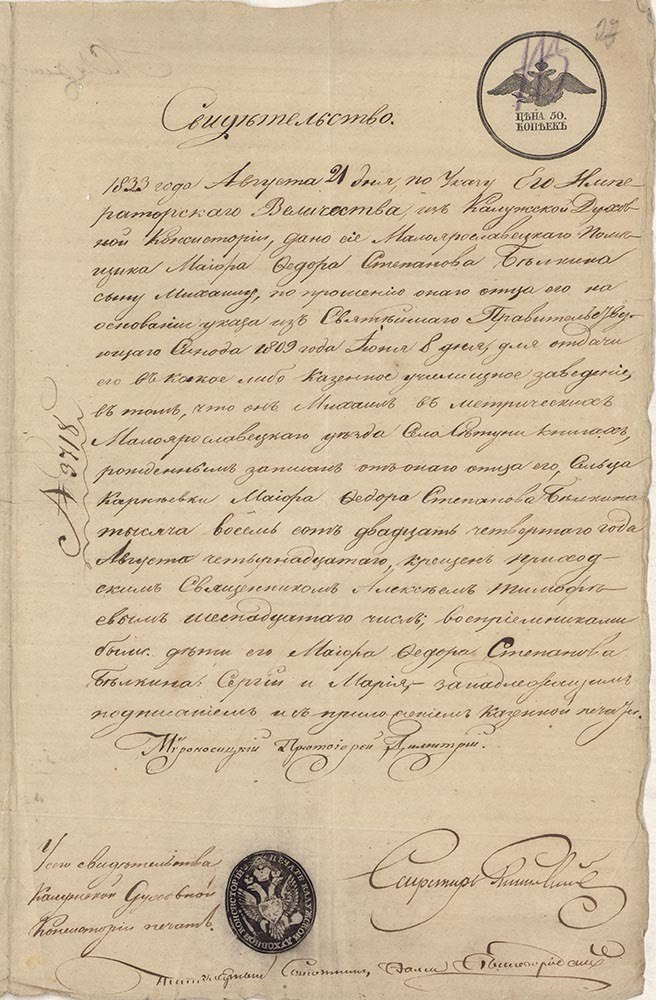 27
113
ЦѢНА 50.
КОПѢЕКЪ
Свидѣтельство.
1833 года Августа 21 дня, по Указу Его Импе-
раторскаго Величества, изъ Калужской Духов-
ной Консисторіи, дано сіе Малоярославецкаго Помѣ-
щика Маіора Ѳедора Степанова Бѣлкина
сыну Михаилу, по прошенію онаго отца его на
основаніи указа изъ Святѣйшаго Правительству-
ющаго Сѵнода 1809 года Іюня 8 дня, для отдачи
его въ какое либо казенное училищное заведеніе,
въ томъ, что онъ Михаилъ въ метрическихъ
Малоярославецкаго уѣзда Села книгахъ,
рожденнымъ записанъ отъ онаго отца его, Сельца
Карнѣевки Маіора Ѳедора Степанова Бѣлкина
тысяча восемь сотъ двадцать четвертаго года
Августа четырнадцатаго, крещенъ приход-
скимъ Священникомъ Алексѣемъ Тимофѣ-
евымъ шестнадцатаго числа; воспріемниками
были: дѣти его Маіора Ѳедора Степанова
Бѣлкина: Сергій и Марія, – за надлежащимъ
подписаніемъ и съ приложеніемъ казенной печати.
№ 3718
Мѵроносицкій Протоіерей Димитрій.
У сего свидѣтельства
Калужской Духовной
Консисторіи печать.
ПЕЧАТЬ КАЛУЖСКОЙ ДУХОВНОЙ КОНСИСТОРІИ
Секретарь
Титулярный Совѣтникъ